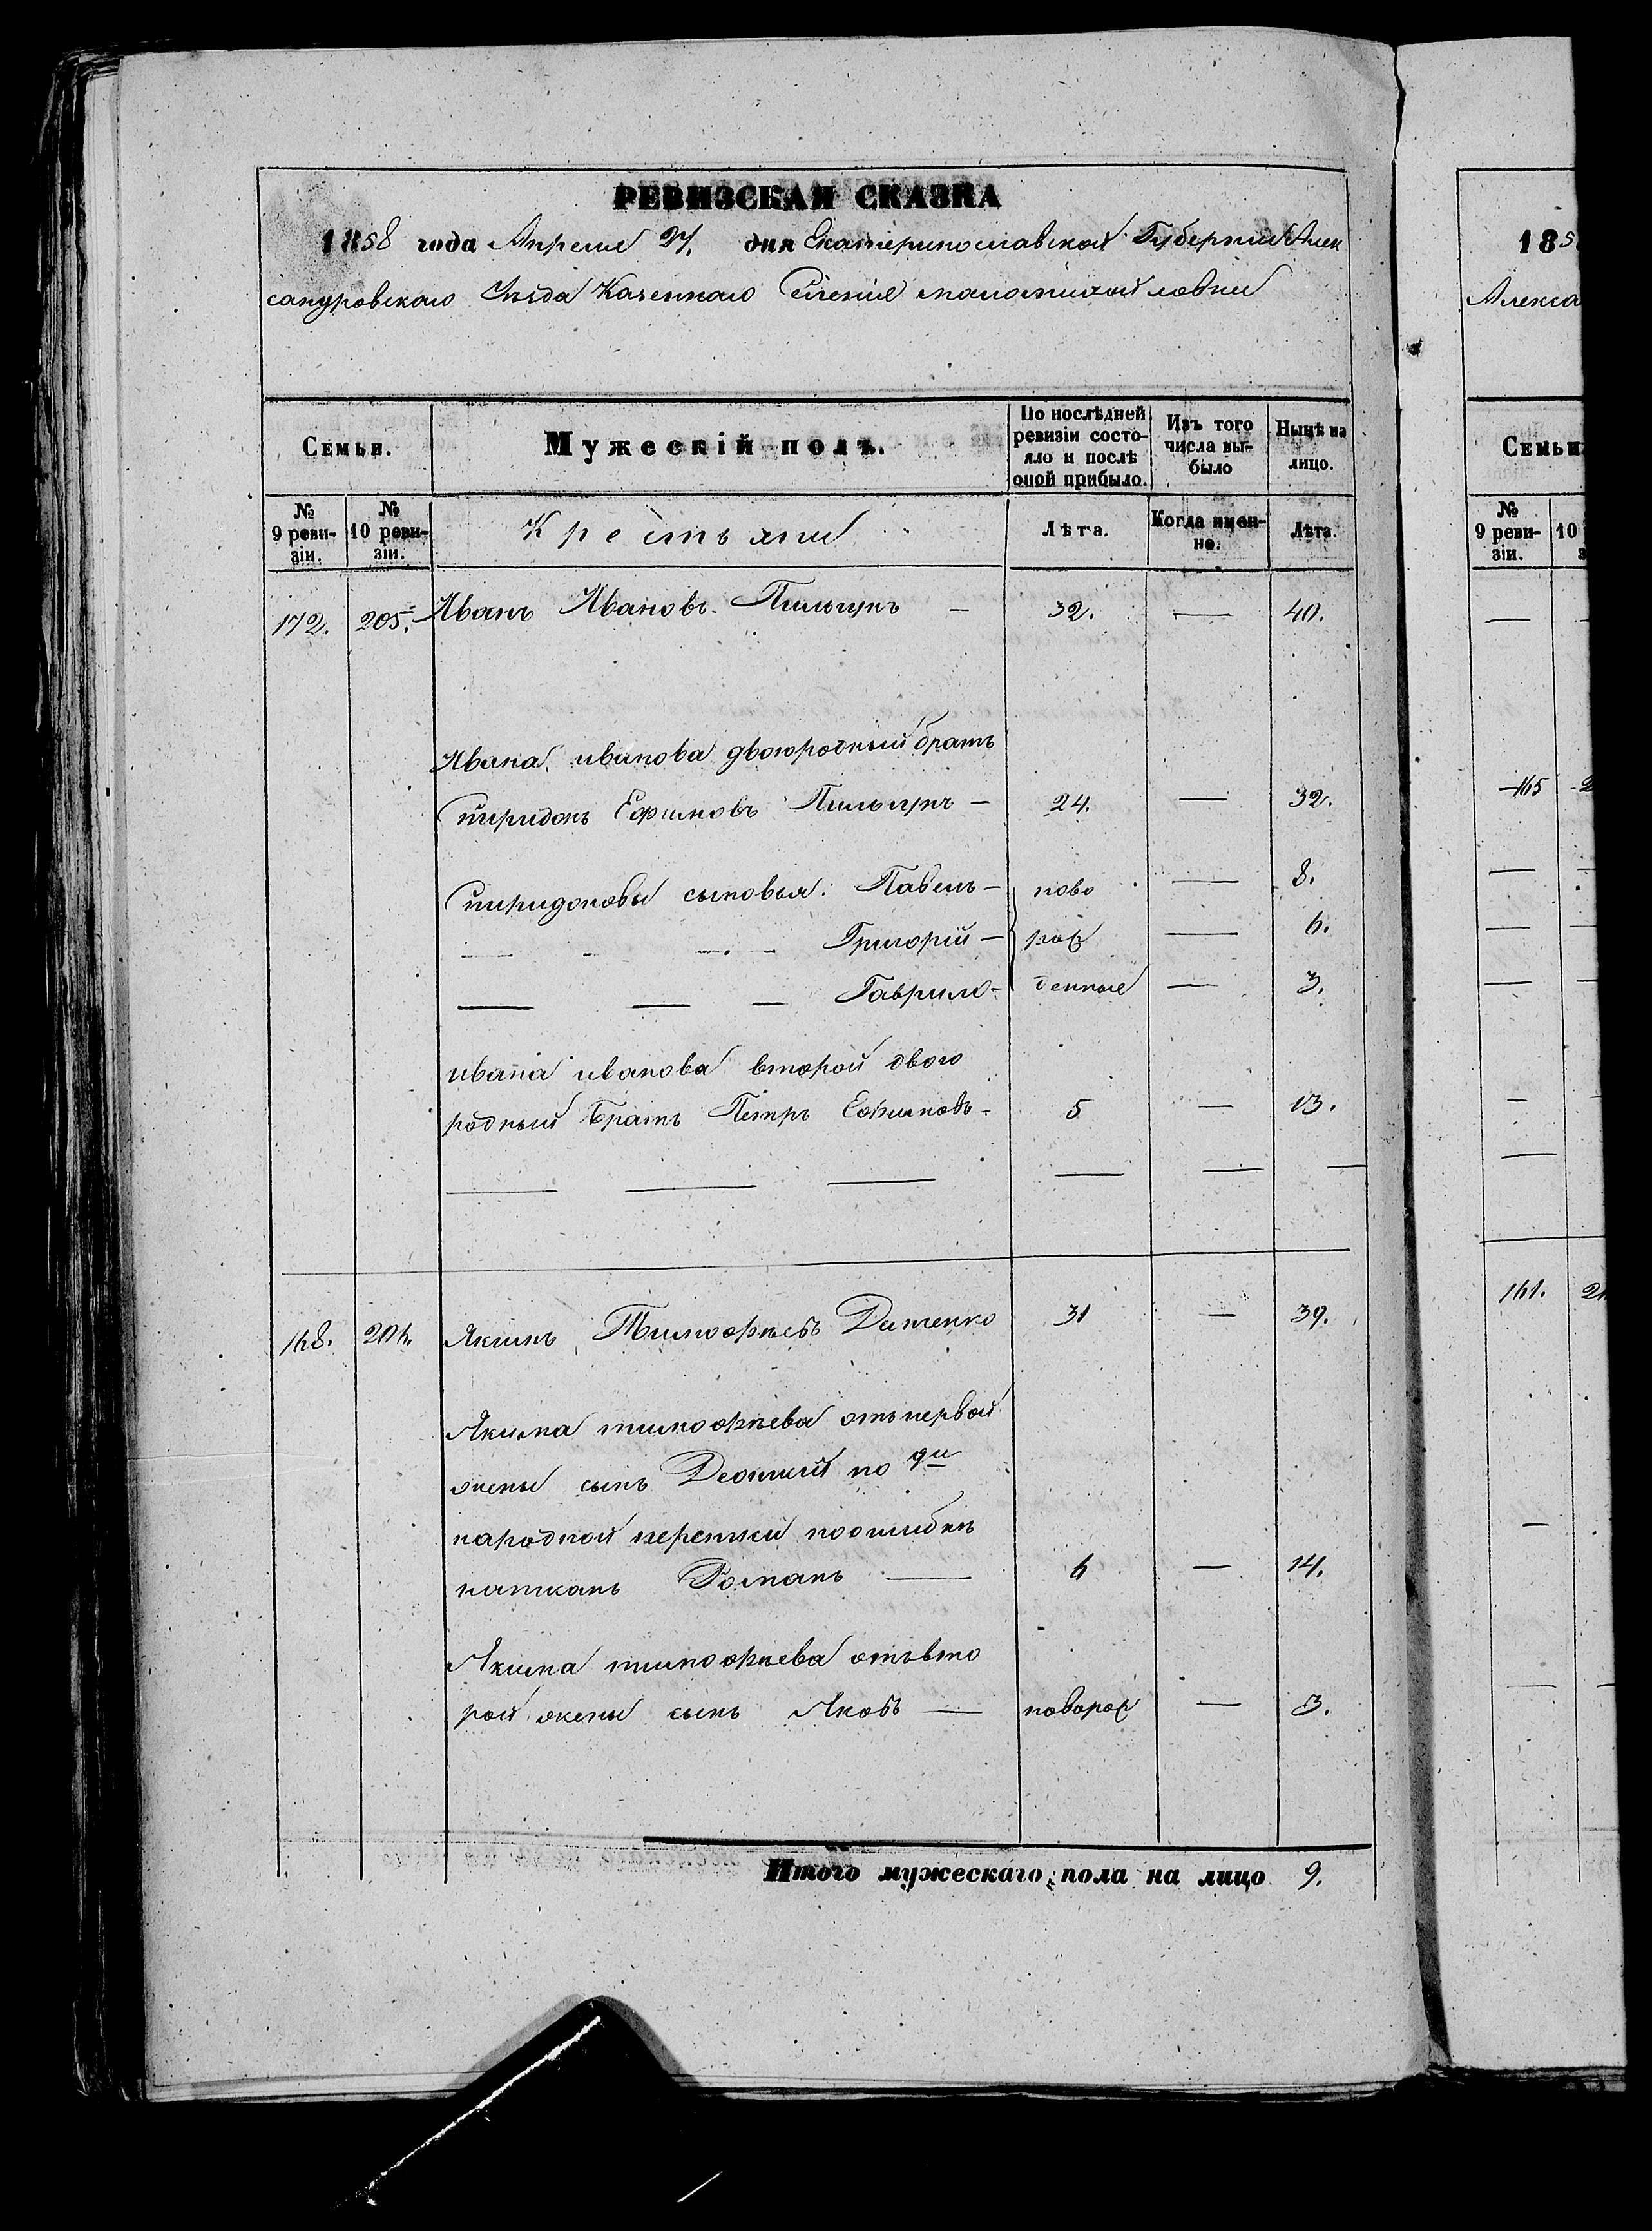 РЕВИЗСКАЯ СКАЗКА
1858 года Апреля 27. дня Екатеринославской Губернии Алек
сандровскаго Уѣзда Казеннаго Селенія маломихайловки
Семьи.
Мужескій полъ.
По послѣдней ревизіи состояло и послѣ оной прибыло.
Изъ того числа выбыло
Нынѣ на лицо.
№ 9 ревизіи.
№ 10 ревизіи.
Крестьяне
Лѣта.
Когда именно.
Лѣта.
172. 205. Иванъ Ивановъ Пильгунъ — 32. — 40.
Ивана иванова двоюродный братъ
Спиридонъ Ефимовъ Пильгунъ — 24. — 32.
Спиридоновы сыновья: Павелъ — ново — 8.
— — — Григорій — рож — 6.
— — — Гаврило — денные — 3.
ивана иванова второй двою
родный братъ Петръ Ефимовъ - 5 — 13.
168. 206. Якимъ Тимофѣевъ Даценко 31 — 39.
Якима тимофѣева отъ первой
жены сынъ по 9й
народной переписи поошибкѣ
написанъ Романъ — 6 — 14.
Якима тимофѣева отъ вто
рой жены сынъ Яковъ — новорож — 3.
Итого мужескаго пола на лицо 9.
185
Алекса
Семьи
№ 9 ревизіи.
10
165 2
161.